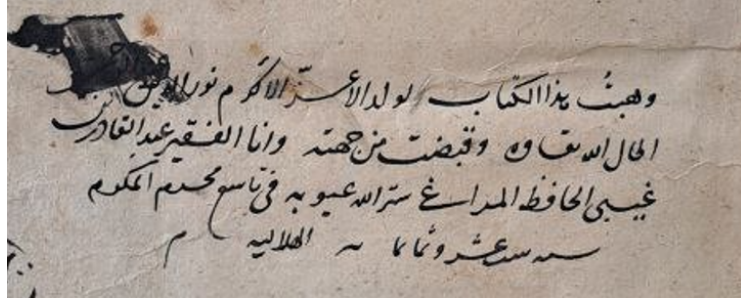 وهبتُ هذا الكتاب لولد الأعزّ الاكرم نور
اطال الله بقاءه وقبضت من جهته وانا الفقير عبد القادر بن
غيبى الحافظ المراغى ستر الله عيوبه فى تاسع محرم المكرم
سنه ست عشر وثمانمائه الهلاليه م